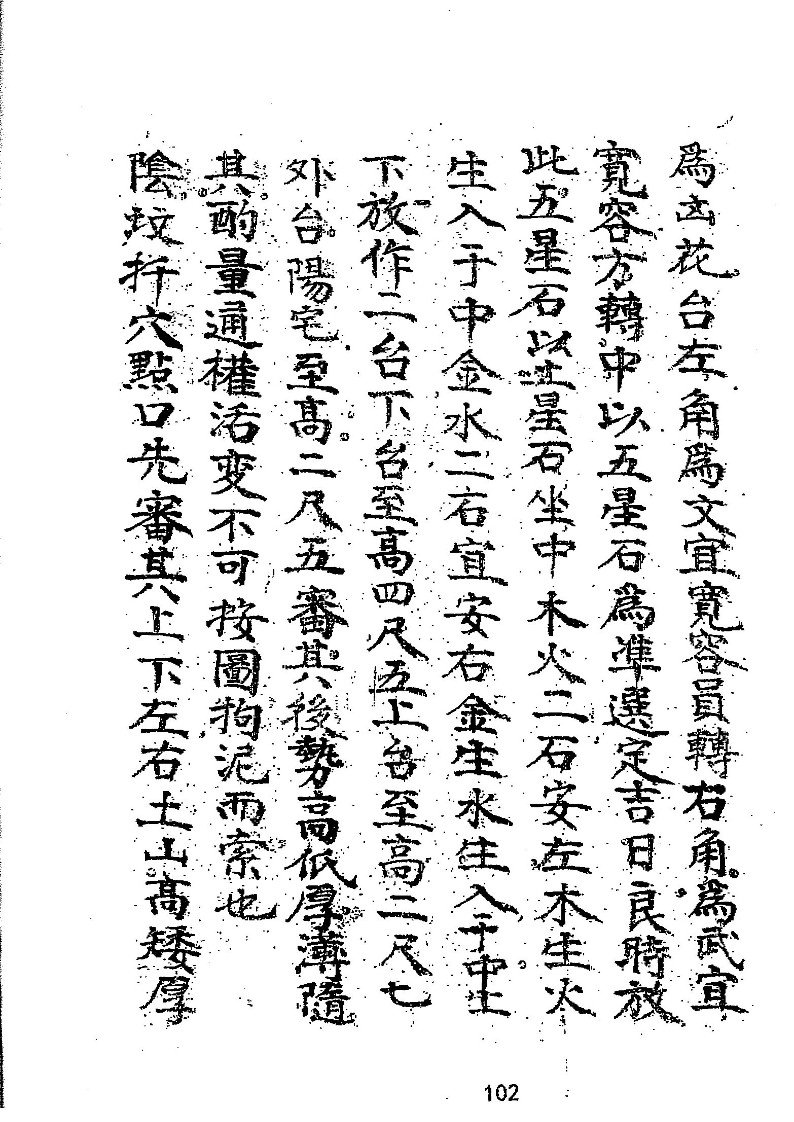 爲凶花台左角爲文宜寬容員轉右角爲武宜
寬容方轉中以五星石爲準選定吉日良時放
此五星石以土星石坐中木火二石安左木生火
生入于中金水二石宜安右金生水生入于中土
下放作二台下台至高四尺五上台至高二尺七
外台陽宅至高二尺五審其後勢高低厚薄隨
其酌量通權活変不可按圖拘泥而索也
陰坟扦穴點口先審其上下左右土山高矮厚
102